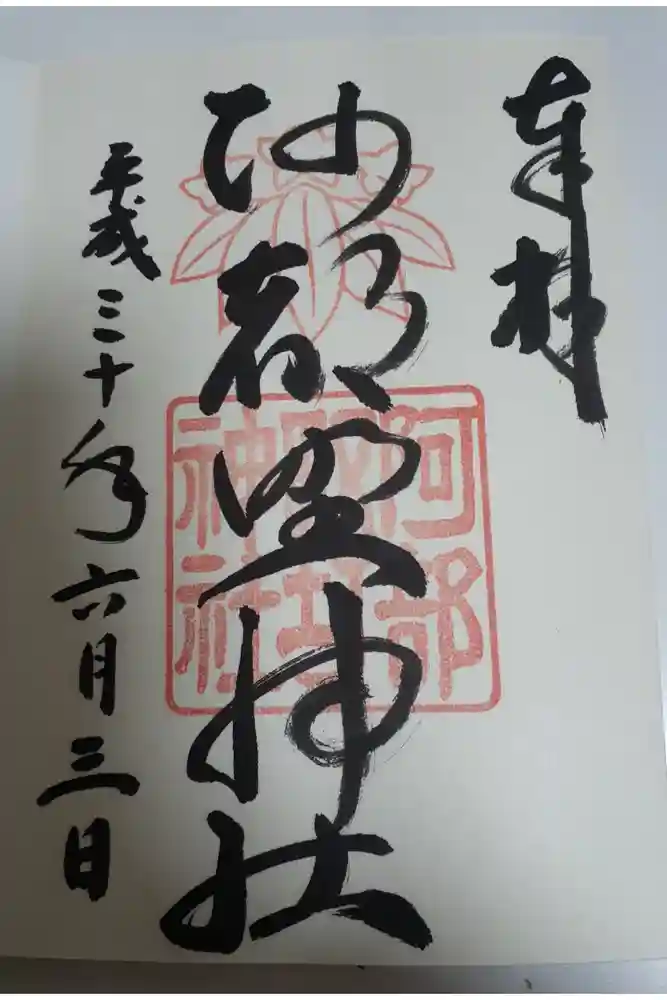 奉拝
阿部野神社
平成三十年六月三日
阿部
野
神社